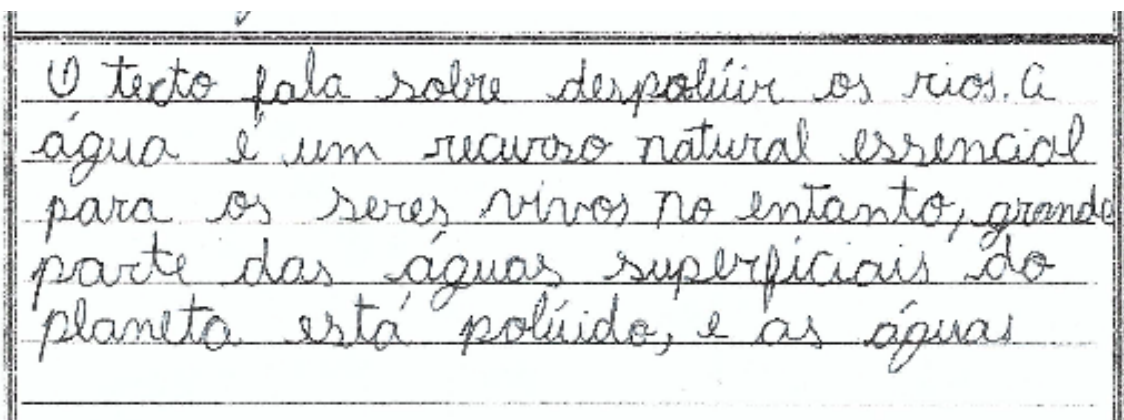 O texto fala sobre despolúir os rios. A
água é um recurso natural essencial
para os seres vivos no entanto, grande
parte das águas superficiais do
planeta está polúido, e as águas